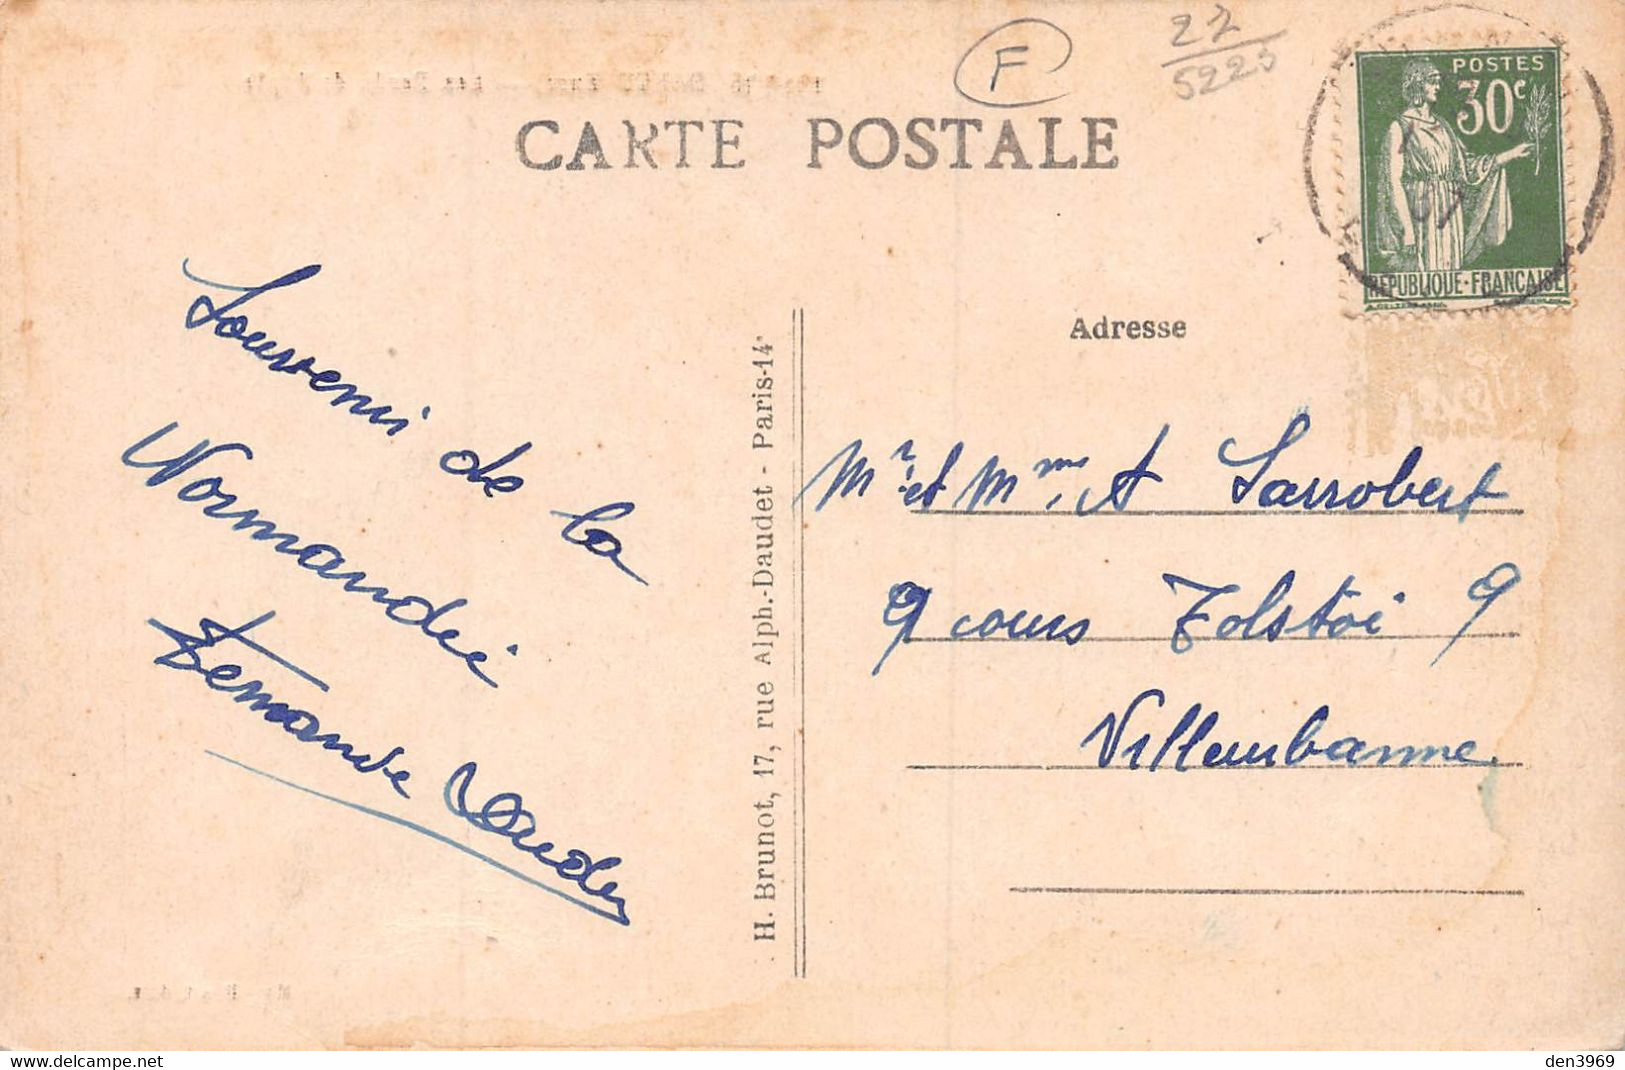 F
27
5225
CARTE POSTALE
POSTES
30c
REPUBLIQUE-FRANÇAISE
Souvenir de la
Normandie
Fernande
H. Brunot, 17, rue Alph.-Daudet - Paris-14e
Adresse
Mr et Mme A Sarrobert
9 cours Tolstoï 9
Villeurbanne
www.delcampe.net
den3969